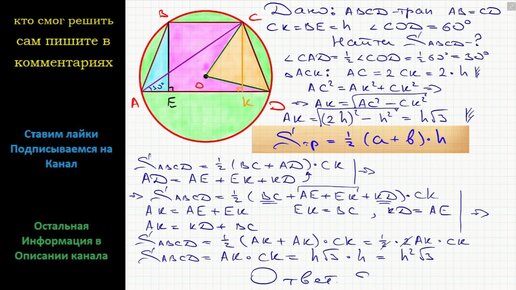 кто смог решить
сам пишите в
комментариях
Ставим лайки
Подписываемся на
Канал
Остальная
Информация в
Описании канала
B
C
A
30°
E
O
K
D
Дано: ABCD-трап AB=CD
CK=BE=h ∠COD=60°
Найти S ABCD-?
∠CAD=½∠COD=½60°=30°
△ACK: AC=2CK=2·h
AC²=AK²+CK² ⇒
⇒ AK=√(AC²-CK²)
AK=√((2h)²-h²)=h√3
Sтр=½(a+b)·h
S ABCD=½(BC+AD)·CK
AD=AE+EK+KD
⇒ S ABCD=½(BC+AE+EK+KD)·CK
AK=AE+EK EK=BC, KD=AE
AK=KD+BC
S ABCD=½(AK+AK)·CK=½·2AK·CK
S ABCD=AK·CK=h√3·h=h²√3
Ответ ?